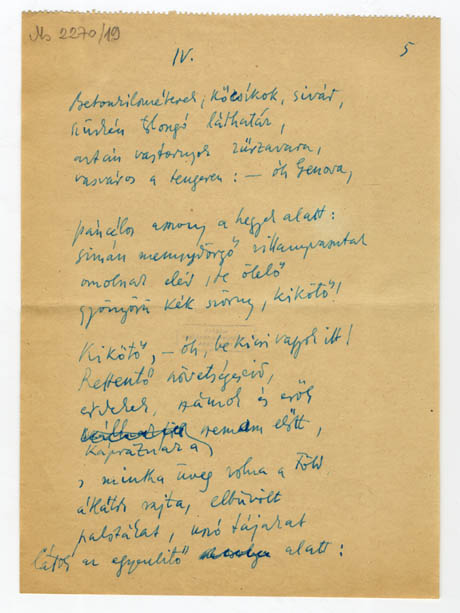 Ms 2270/19
IV.
5
Betonkilométerek, kőcsíkok, sivár,
szürkén tolongó láthatár,
aztán vastornyok zűrzavara,
vasváros a tengeren: – óh Genova,
páncélos asszony a hegyek alatt:
simán mennydörgő villamvonatok
omolnak eléd, te ölelő
gyönyörű kék szörny, kikötő!
Kikötő, – óh, be kicsi vagyok itt!
Rettentő szövetségeid,
érdekek, számok és erők
szemem előtt,
kápráznak
s mintha üveg volna a Föld
átlátok rajta, elbűvölt
pálmákat, úszó tájakat
látok az egyenlítő alatt: